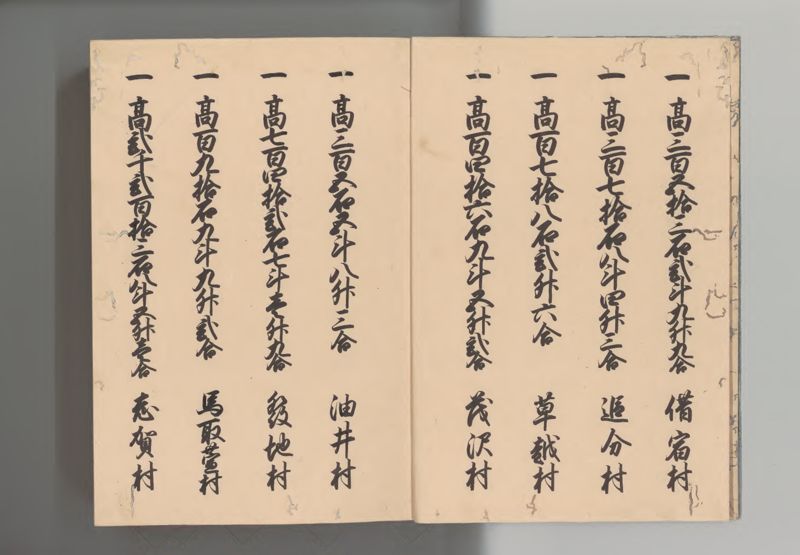 一 高三百五拾三石弐斗九升九合 借宿村
一 高三百七拾石八斗四升三合 追分村
一 高百七拾八石弐升六合 草越村
一 高百四拾六石九斗五升弐合 茂沢村
一 高三百五石五斗八升三合 油井村
一 高七百四拾弐石七斗壱升九合 發地村
一 高百九拾石九斗九升弐合 馬取萱村
一 高弐千弐百拾三石八斗五升壱合 志賀村